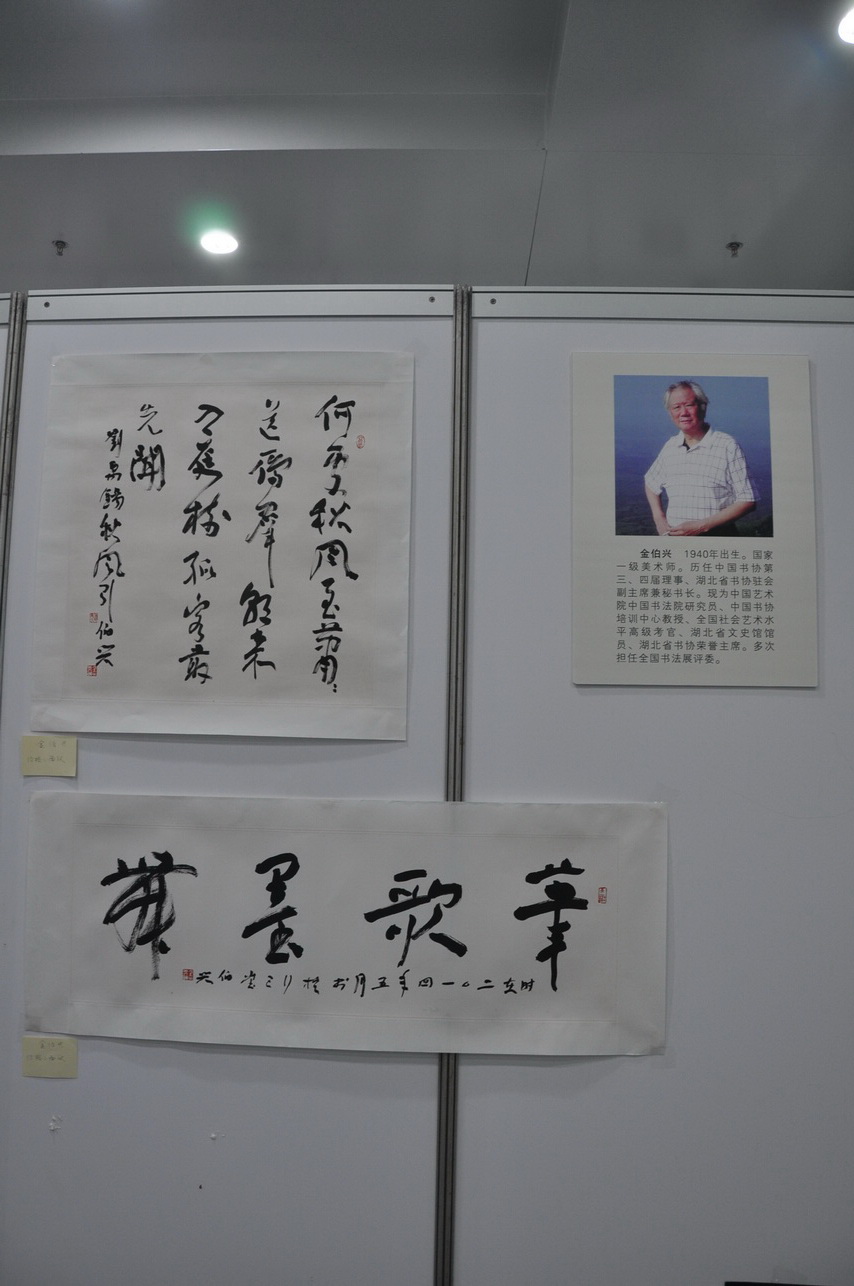 何處秋風至蕭々
送雁羣朝来
入庭樹孤客最
先聞
劉禹錫秋風引 伯兴
金伯兴 1940年出生。国家
一级美术师。历任中国书协第
三、四届理事、湖北省书协驻会
副主席兼秘书长。现为中国艺术
院中国书法院研究员、中国书协
培训中心教授、全国社会艺术水
平高级考官、湖北省文史馆馆
员、湖北省书协荣誉主席。多次
担任全国书法展评委。
筆歌墨舞
时在二〇一四年五月於 伯兴